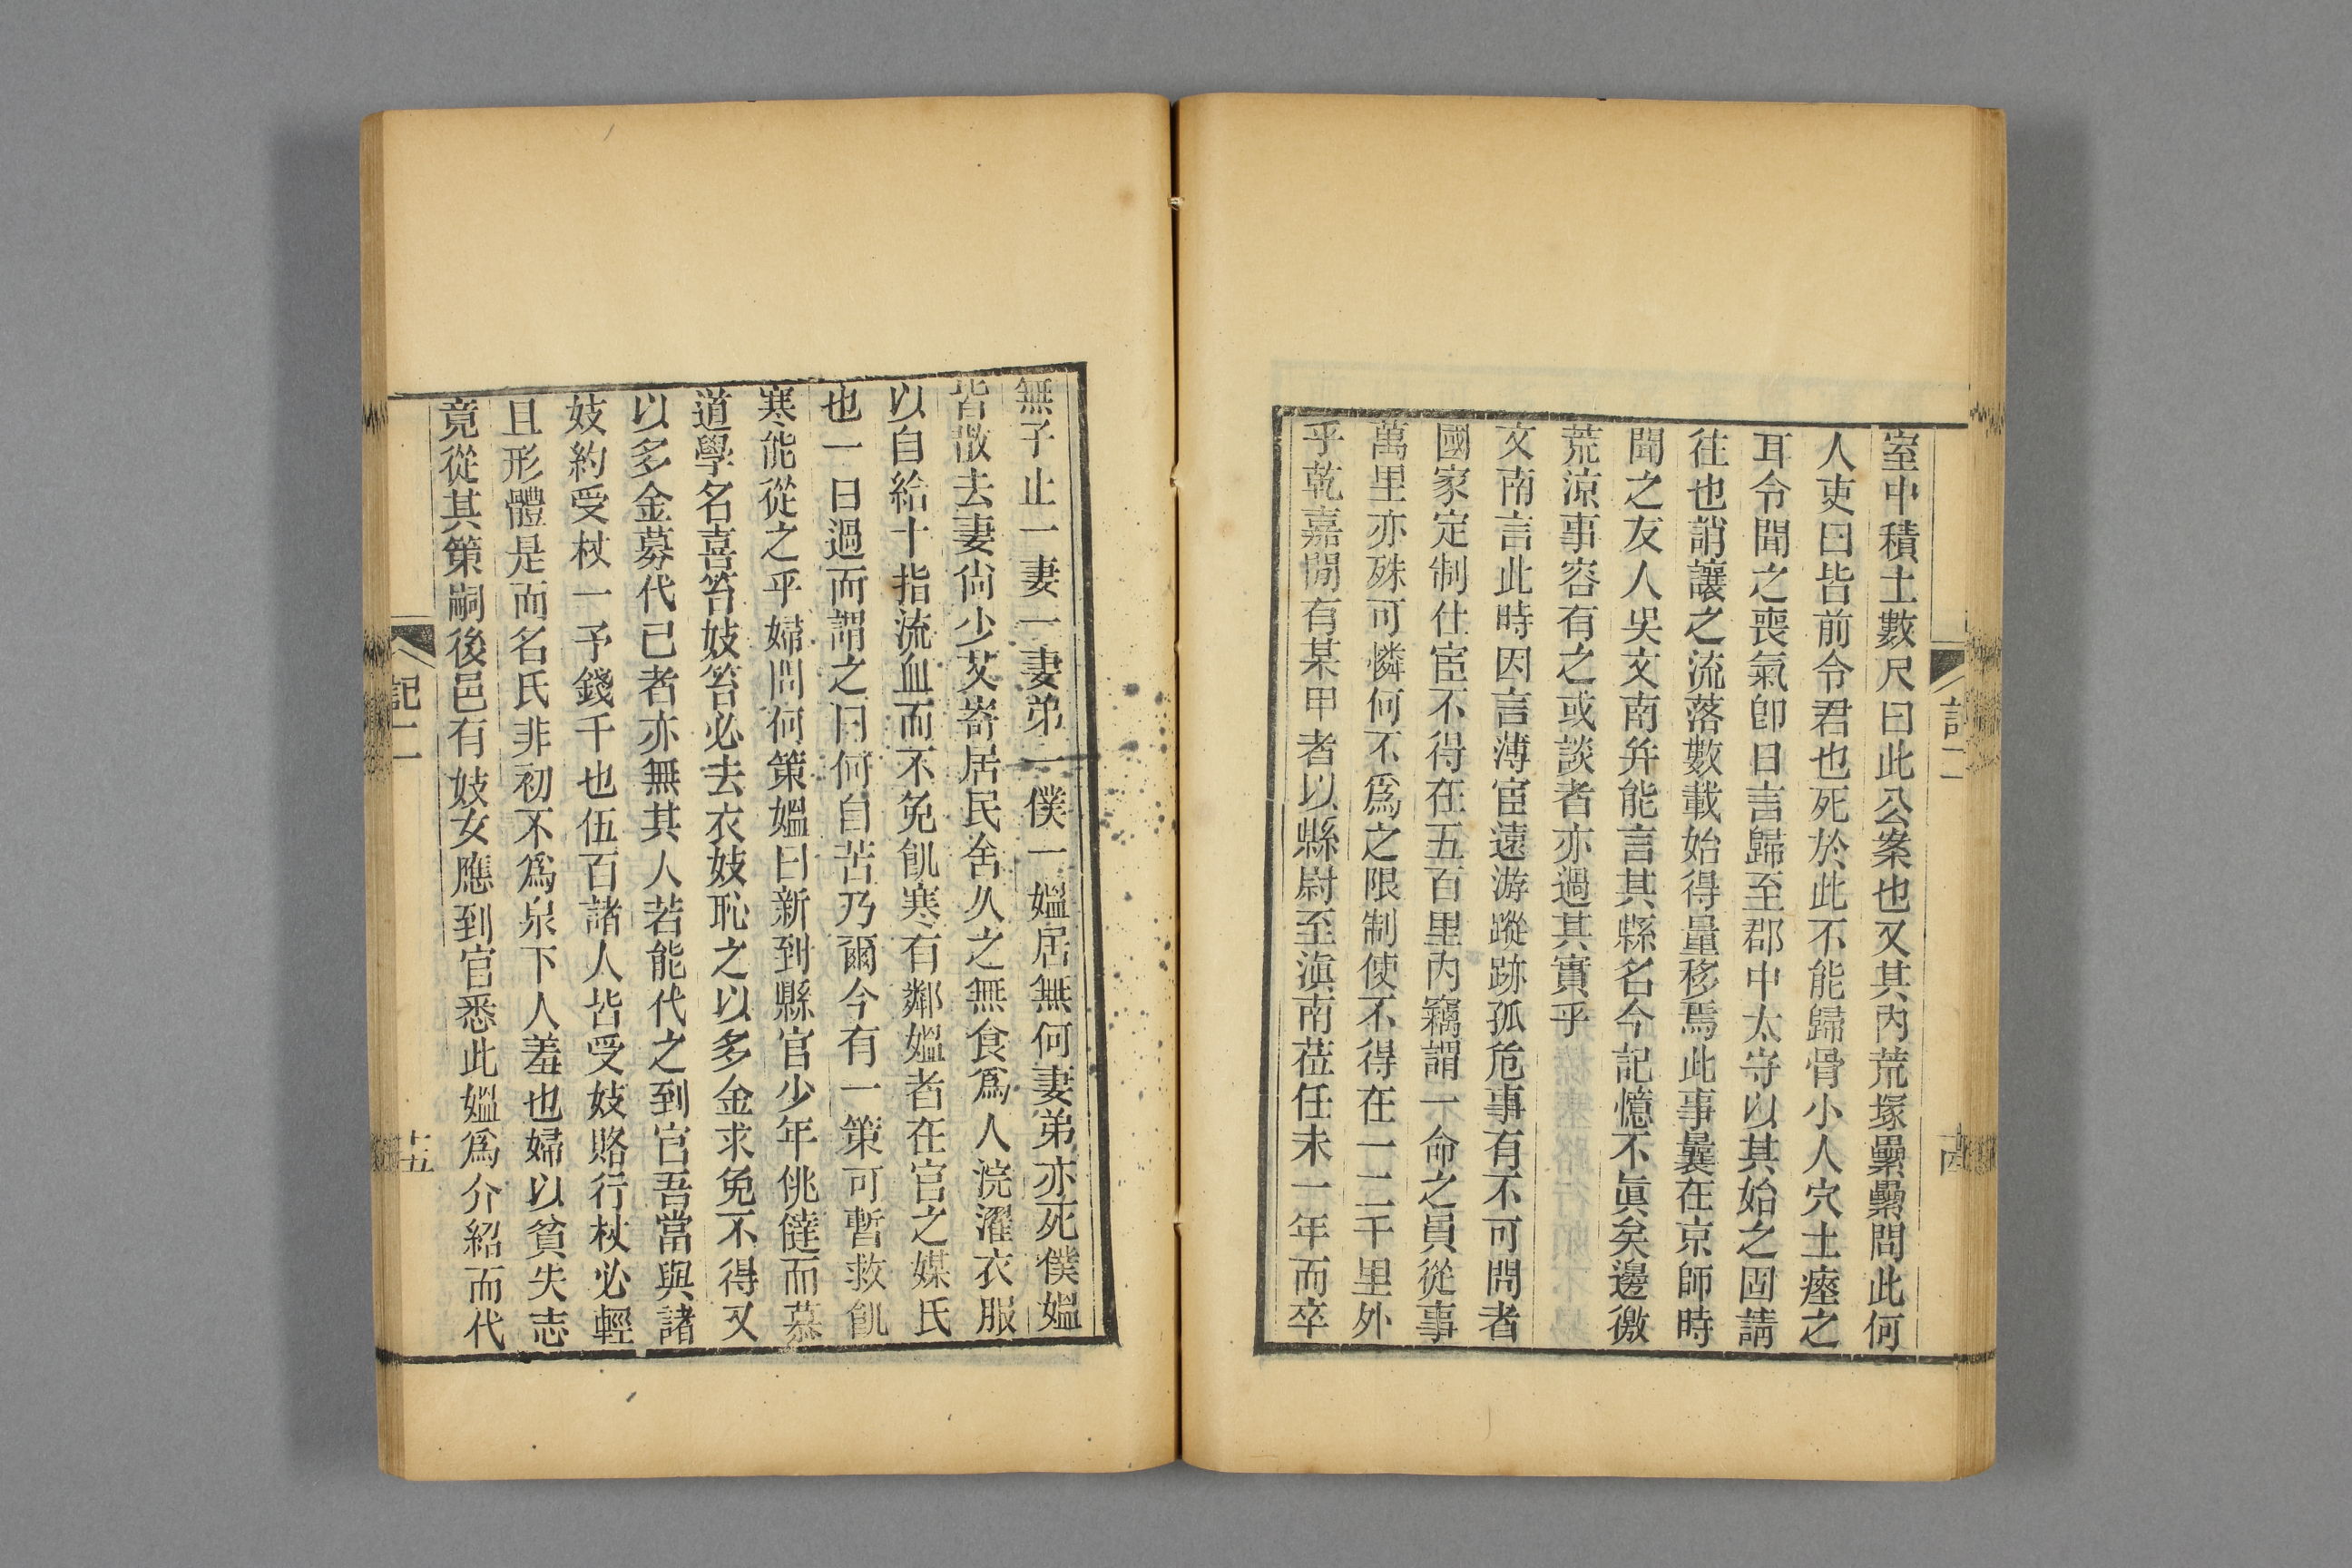 記二
古
室中積土數尺曰此公案也又其內荒塚纍纍問此何
人吏曰皆前令君也死於此不能歸骨小人穴土瘞之
耳令聞之喪氣卽日言歸至郡中太守以其始之固請
往也誚讓之流落數載始得量移焉此事曩在京師時
聞之友人吳文南弁能言其縣名今記憶不眞矣邊徼
荒涼事容有之或談者亦過其實乎
文南言此時因言薄宦遠游蹤跡孤危事有不可問者
國家定制仕宦不得在五百里內竊謂一命之員從事
萬里亦殊可憐何不爲之限制使不得在一二千里外
乎乾嘉閒有某甲者以縣尉至滇南莅任未一年而卒
無子止一妻一妻弟一僕一媼居無何妻弟亦死僕媼
皆散去妻尙少艾寄居民舍久之無食爲人浣濯衣服
以自給十指流血而不免飢寒有鄰媼者在官之媒氏
也一日過而謂之曰何自苦乃爾今有一策可暫救飢
寒能從之乎婦問何策媼曰新到縣官少年佻㒓而慕
道學名喜笞妓笞必去衣妓恥之以多金求免不得又
以多金募代己者亦無其人若能代之到官吾當與諸
妓約受杖一予錢千也伍百諸人皆受妓賂行杖必輕
且形體是而名氏非初不爲泉下人羞也婦以貧失志
竟從其策嗣後邑有妓女應到官悉此媼爲介紹而代
記二
十五